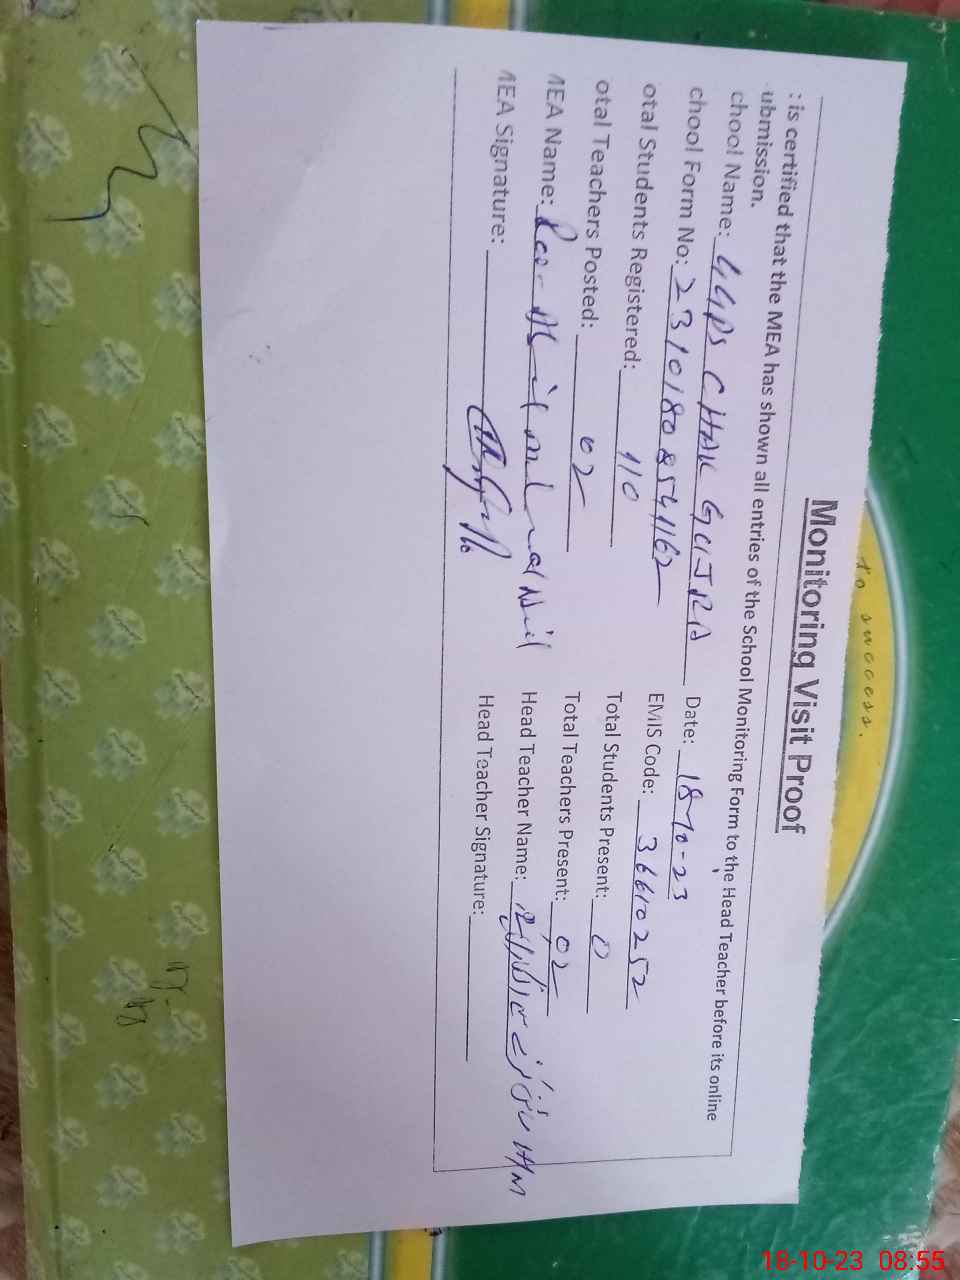 to success.
Monitoring Visit Proof
: is certified that the MEA has shown all entries of the School Monitoring Form to the Head Teacher before its online
ubmission.
chool Name: GGPS CHAK GUJRA Date: 18-10-23
chool Form No: 23101808541162 EMIS Code: 36610252
otal Students Registered: 110 Total Students Present: 0
otal Teachers Posted: 02 Total Teachers Present: 02
MEA Name: Head Teacher Name:
MEA Signature: Head Teacher Signature:
18-10-23 08:55